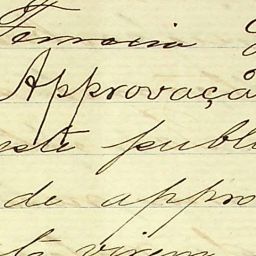 Ferreira
Approvação
este publ
de appro
virem